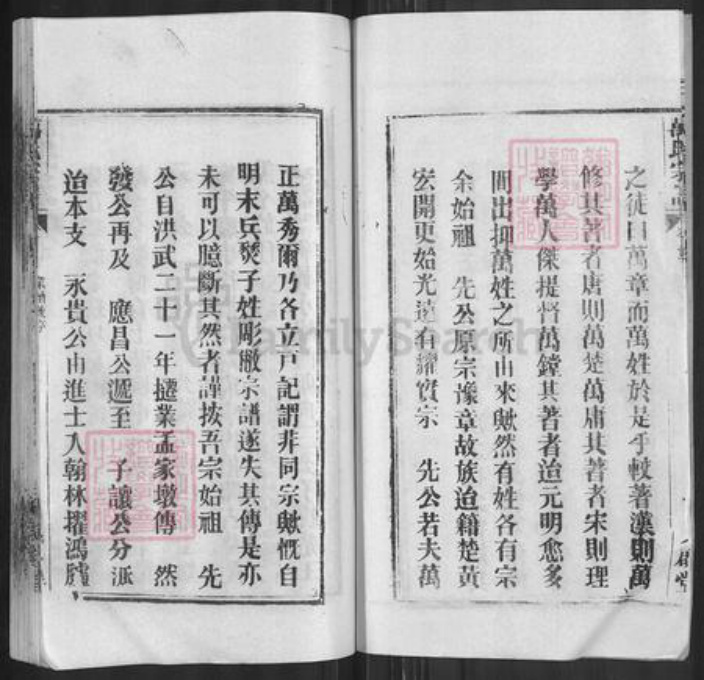 之徒曰萬章而萬姓於是乎較著漢則萬
修其著者唐則萬楚萬庸其著者宋則理
學萬人傑提督萬鏜其著者迨元明愈多
間出抑萬姓之所由來歟然有姓各有宗
余始祖 先公原宗豫章故族迨籍楚黃
宏開更始光遠有耀實宗 先公若夫萬
正萬秀爾乃各立戸記謂非同宗歟慨自
明末兵燹子姓彫敝宗譜遂失其傳是亦
未可以臆斷其然者謹按吾宗始祖 先
公自洪武二十一年㨗業孟家墩傳 然
發公再及 應昌公遞至 子讓公分派
迨本支 永貴公由進士入翰林擢鴻臚
FamilySearch